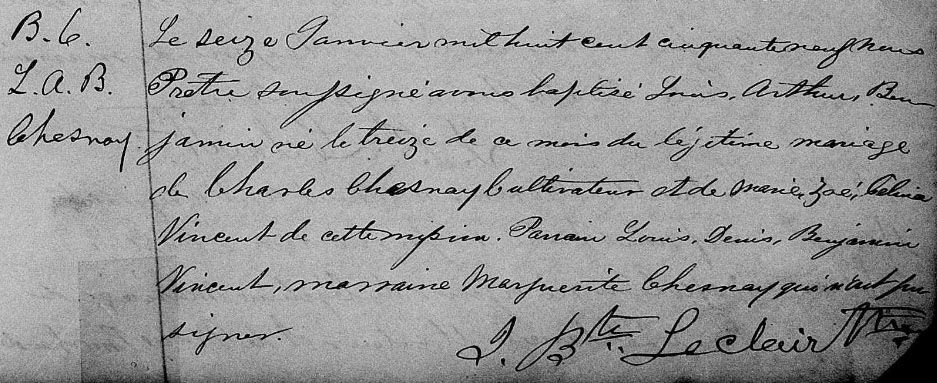 B. 6.
L. A. B.
Chesnay
Le seize Janvier mil huit cent cinquante neuf nous
Prêtre soussigné avons baptisé Louis, Arthur, Ben
jamin né le treize de ce mois du légitime mariage
de Charles Chesnay Cultivateur et de Marie, Zoé, Célina
Vincent de cette mission. Parrain Louis, Denis, Benjamin
Vincent, marraine Marguerite Chesnay qui n'ont pu
signer.
J. Bte. Leclair Ptre